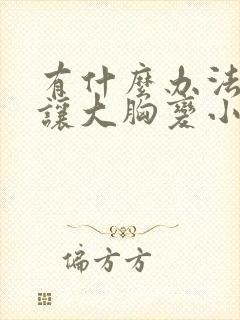 有什麼办法
讓大胸變小
偏方方